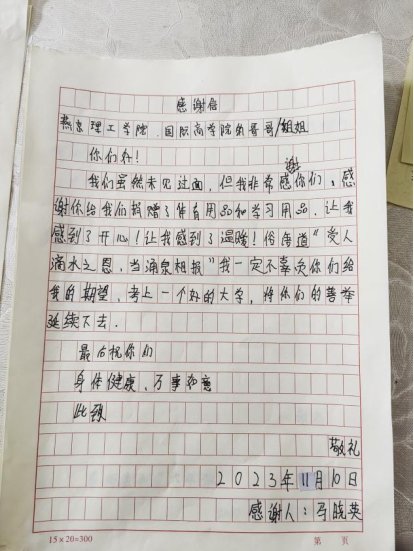 感谢信
燕京理工学院 国际商学院的哥哥/姐姐
你们好!
谢
我们虽然未见过面,但我非常感你们。感
谢你给我们捐赠了体育用品和学习用品,让我
感到了开心!让我感到了温暖!俗话道"受人
滴水之恩,当涌泉相报"我一定不辜负你们给
我的期望,考上一个好的大学,将你们的善举
延续下去.
最后祝你们
身体健康,万事如意
此致
敬礼
2023年11月10日
感谢人:马晓英
15×20=300
第 页